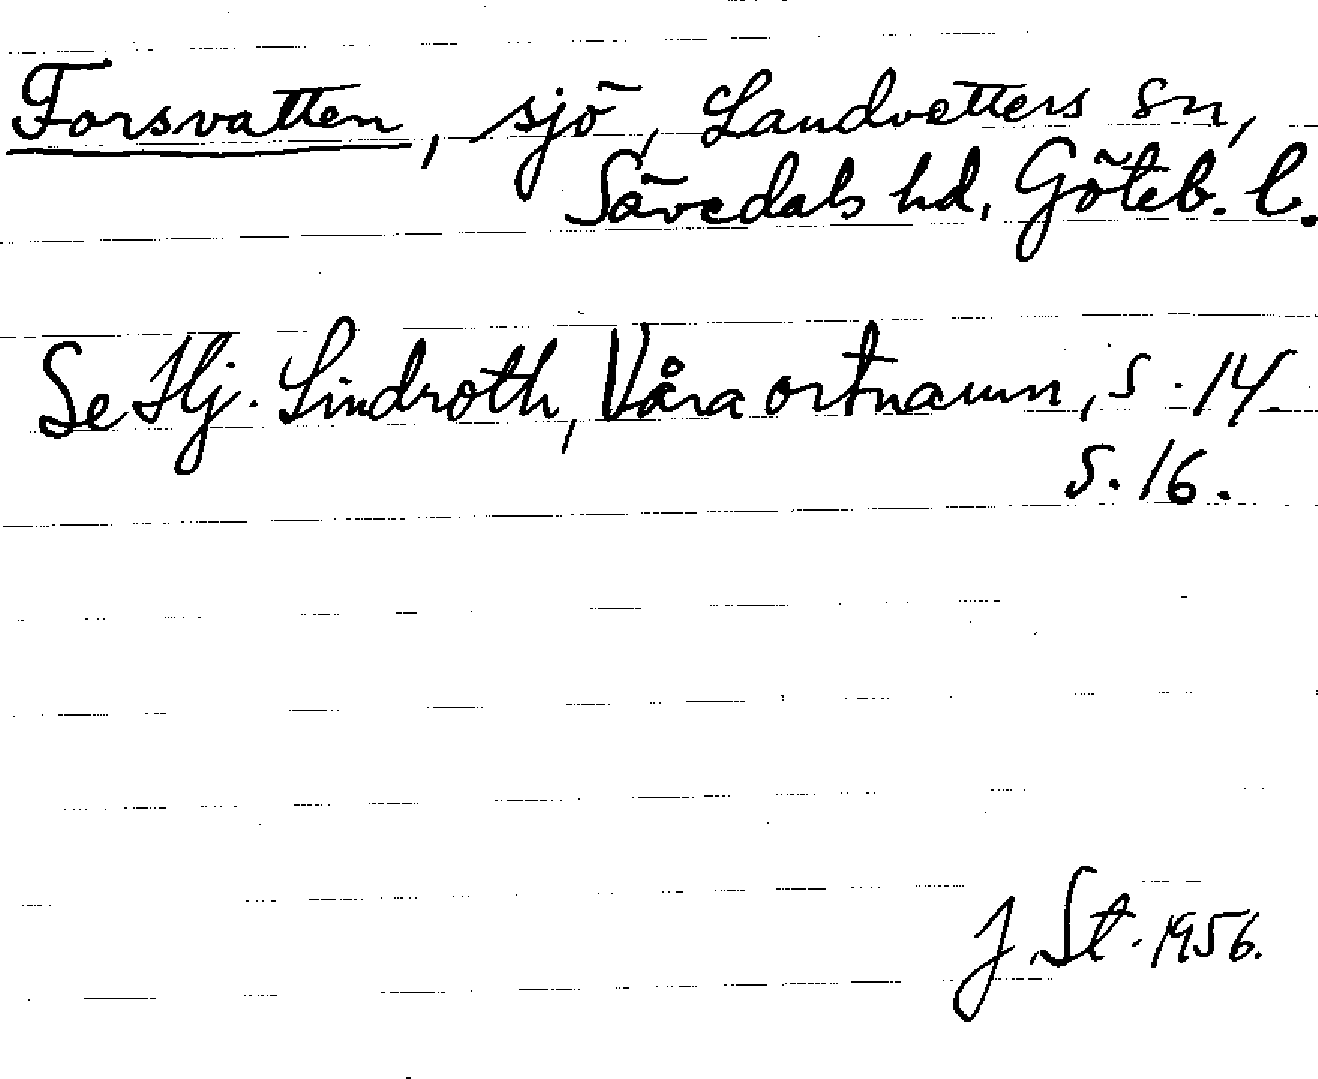 Forsvatten, sjö, Landvetters sn,
Sävedals hd, Göteb. l.
Se Hj. Lindroth, Våra ortnamn, s. 14
s. 16.
J St. 1956.